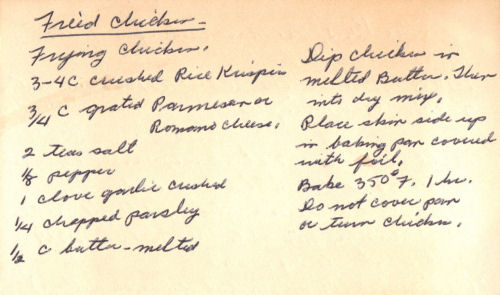 Fried Chicken
Frying Chicken.
3-4 C crushed Rice Krispies
3/4 C grated Parmesan or
Romano cheese.
2 teas salt
1/8 pepper
1 clove garlic crushed
1/4 chopped parsley
1/2 c butter - melted
Dip chicken in
melted Butter. Then
into dry mix.
Place skin side up
in baking pan covered
with foil.
Bake 350° F. 1 hr.
Do not cover pan
or turn chicken.